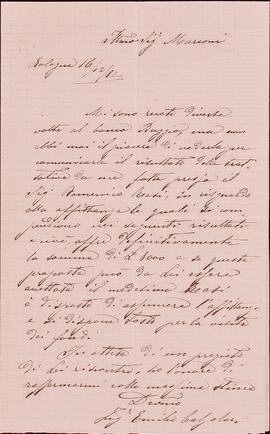 Sig Marconi
Bologna 16/12/82
Mi sono recato diverse
volte al banco ma non
ebbi mai il piacere di vederla per
comunicarle il risultato delle trat-
tative da me fatte presso il
Sig Domenico Rasi, in risguardo
alla affittanza le quali si com-
pendiano nei seguenti risultati
e cioè offre definitivamente
la somma di £ 8000 e se queste
proposte può da Lei essere
accettata il medesimo Rasi
è disposto di assumere l'affittanza
e si dispone tosto per la visita
dei fondi.
In attesa di un pregiato
di Lei riscontro, ho l'onore di
raffermarmi colla massima stima
Devmo
Emilio